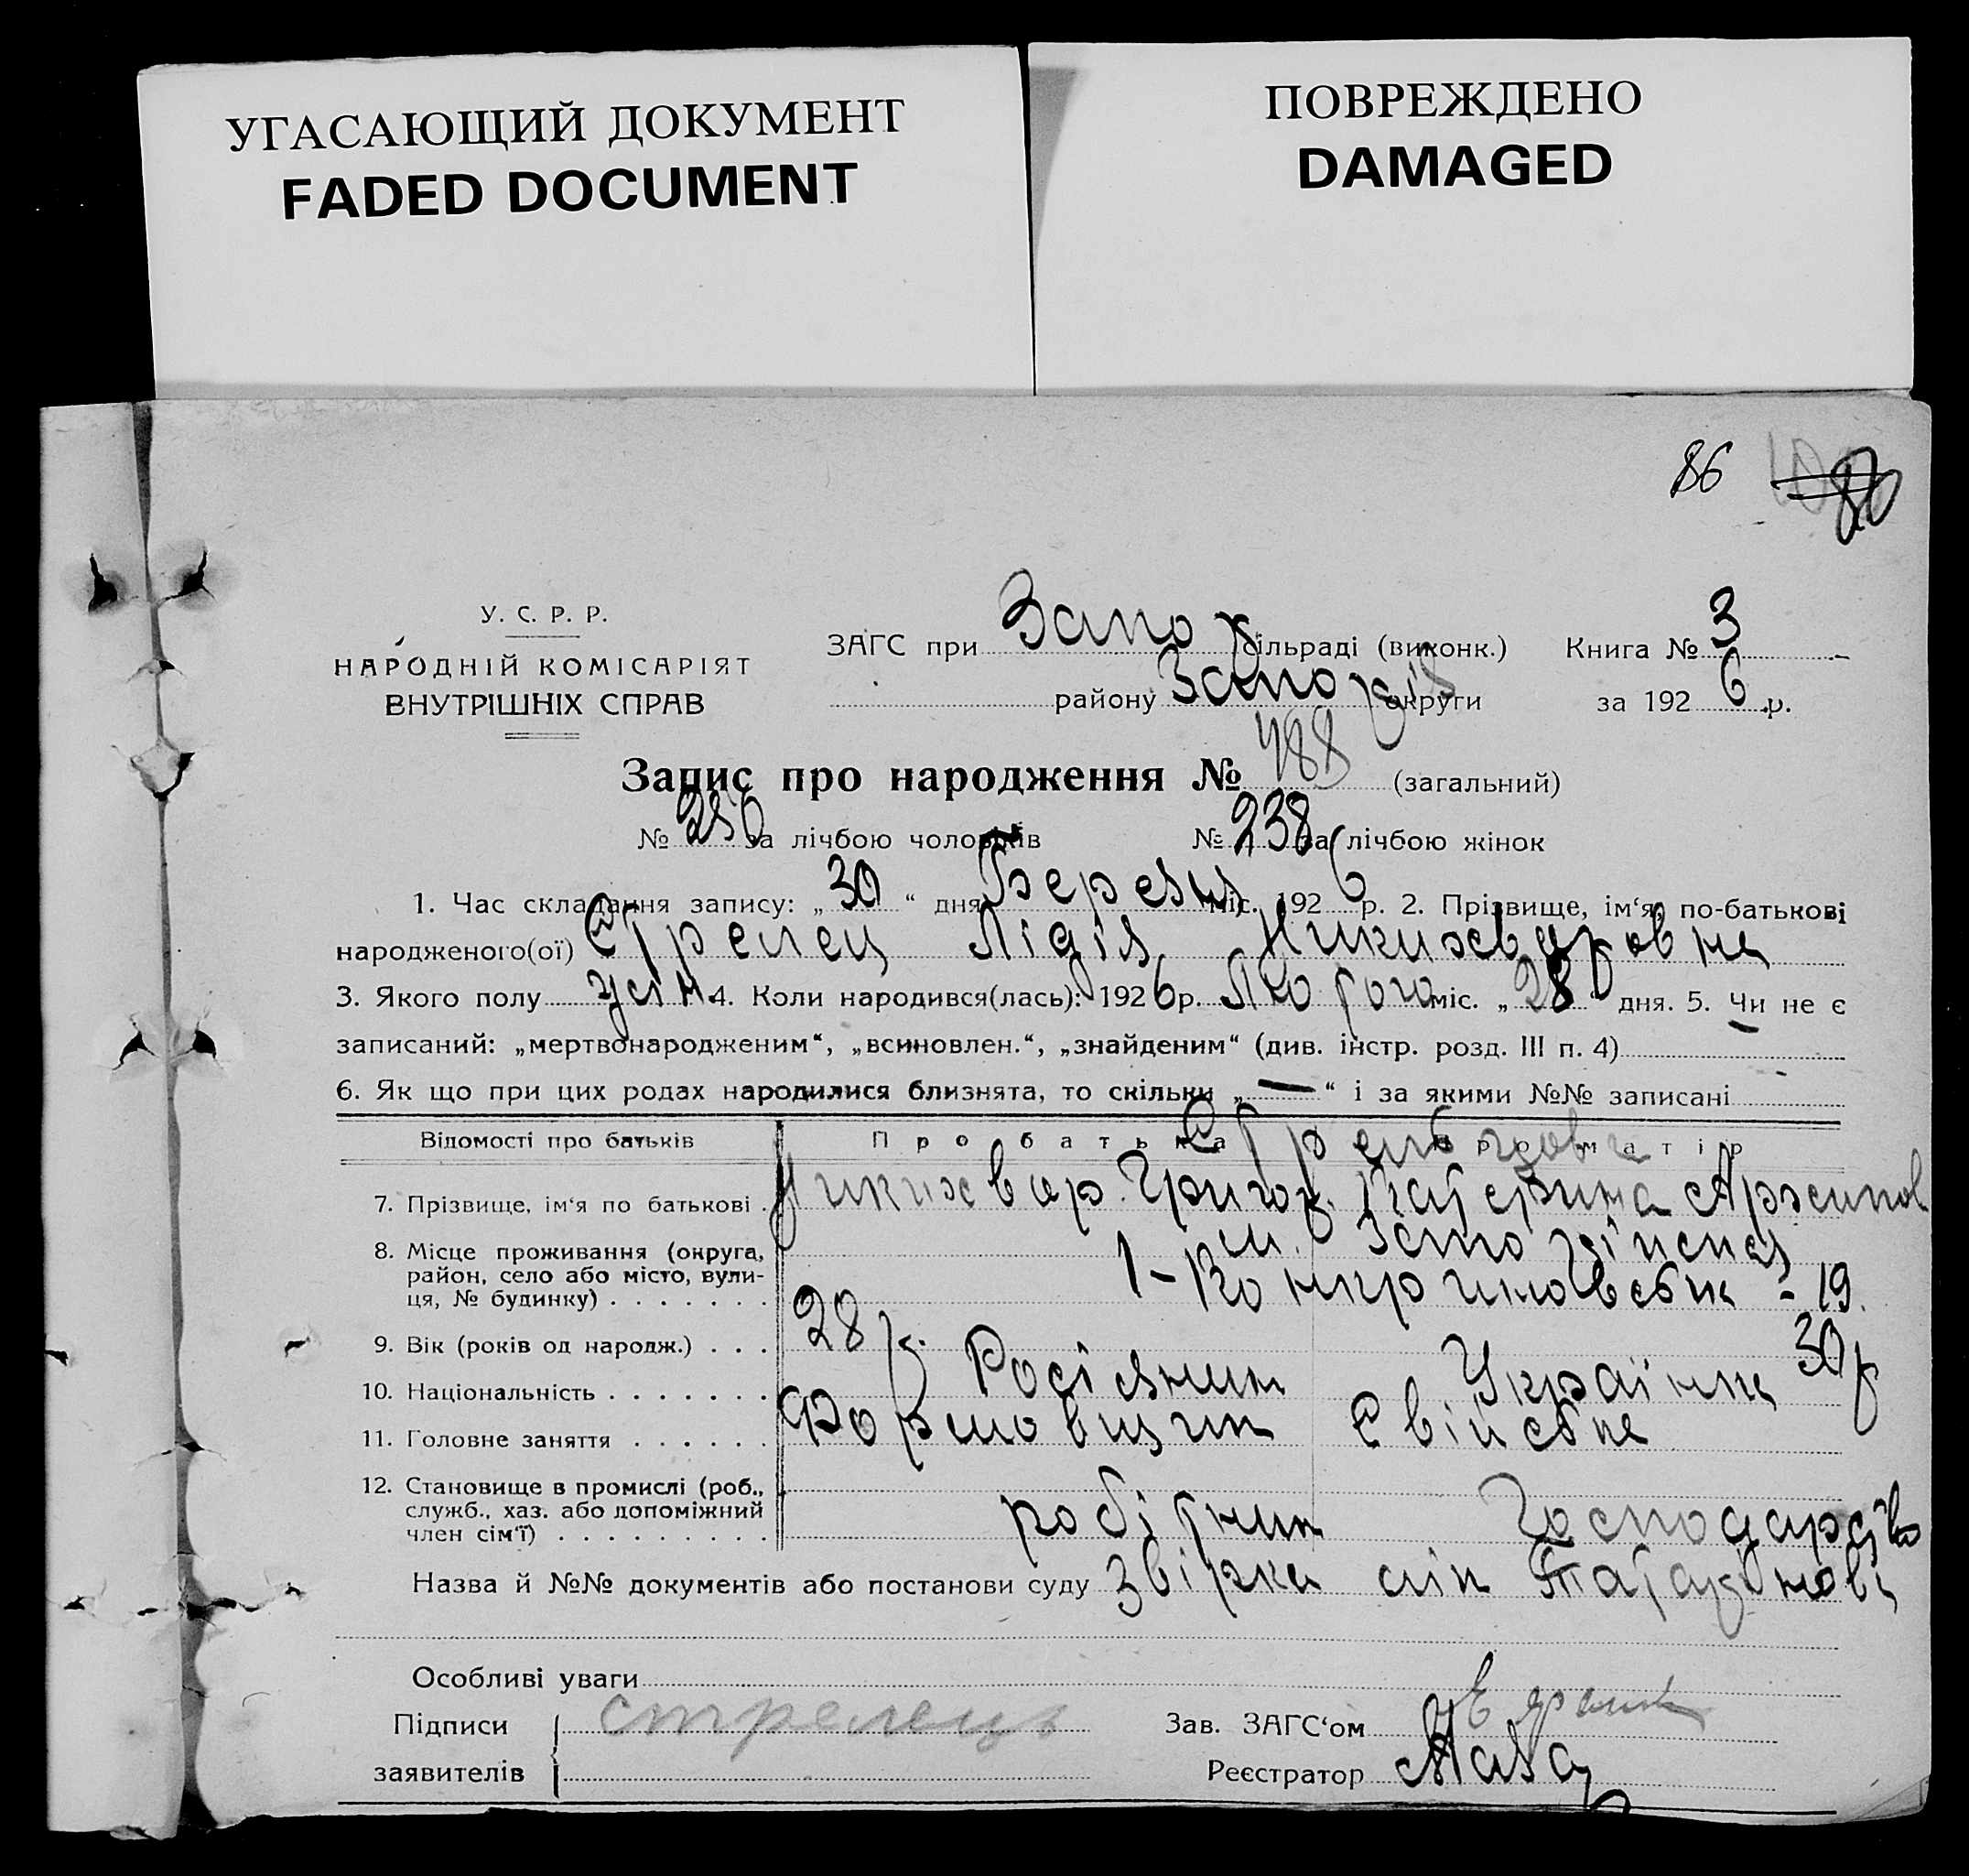 УГАСАЮЩИЙ ДОКУМЕНТ
FADED DOCUMENT
ПОВРЕЖДЕНО
DAMAGED
86
У. С. Р. Р.
НАРОДНІЙ КОМІСАРІЯТ
ВНУТРІШНІХ СПРАВ
ЗАГС при Запор сільраді (виконк.) Книга № 3
району Запоріз округи за 192 6 р.
Запис про народження № 488 (загальний)
№ 250 за лічбою чоловіків № 238 за лічбою жінок
1. Час складання запису: „ 30 “ дня Березня міс. 192 6 р. 2. Прізвище, ім‘я, по-батькові
народженого(ої) Стрелец Лідія Никихваровна
3. Якого полу жін. 4. Коли народився(лась): 192 6 р. Лютого міс. „ 28 “ дня. 5. Чи не є
записаний: „мертвонародженим“, „всиновлен.“, „знайденим“ (див. інстр. розд. III п. 4)
6. Як що при цих родах народилися близнята, то скільки „ — “ і за якими №№ записані
Відомості про батьків Про батька Про матір
7. Прізвище, ім‘я по батькові . Никихвор. Григор. Катерина Архипов
8. Місце проживання (округа, м.
район, село або місто, вули-
ця, № будинку) . . . . . . . 19.
9. Вік (років од народж.) . . . 28 р. 30 р
10. Національність . . . . . . . Росіянин Українка
11. Головне заняття . . . . . . Формовщик
12. Становище в промислі (роб.,
служб., хаз. або допоміжний
член сім‘ї) . . . . . . . . . робітник Господарство
Назва й №№ документів або постанови суду Звірка
Особливі уваги
Підписи стрелець Зав. ЗАГС‘ом
заявителів Реєстратор